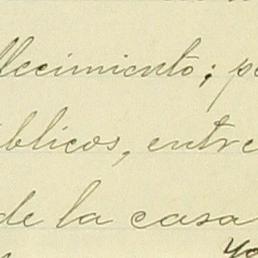 llecimiento; p
blicos, entre
de la casa